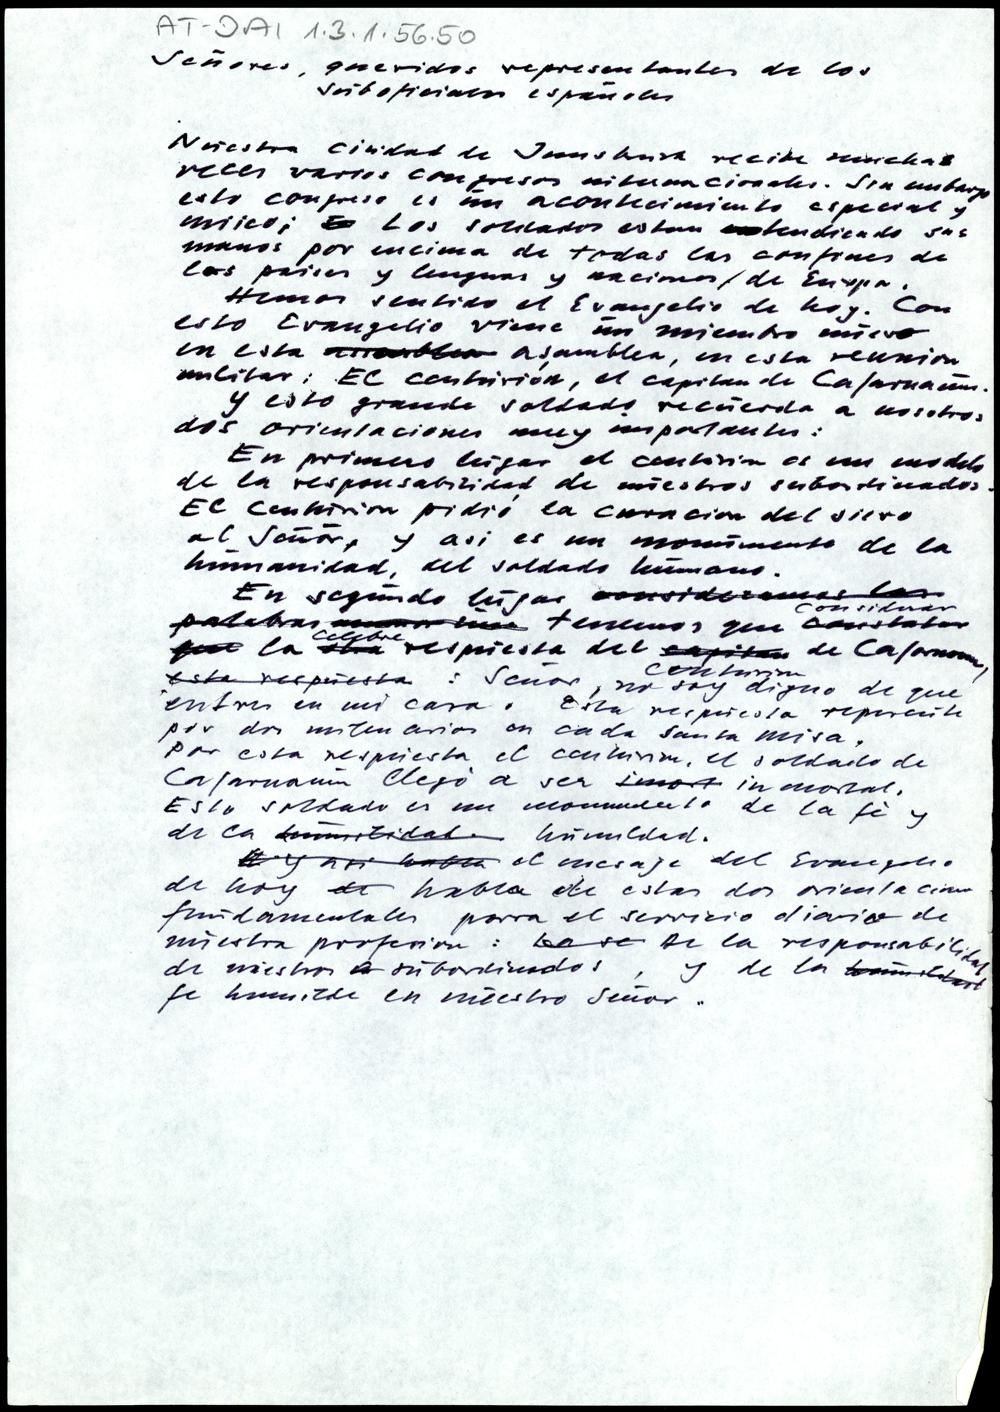 AT-DAI 1.3.1.56.50
Señores, queridos representantes de los
suboficiales españoles
Nuestra ciudad de Innsbruck recibe muchas
veces varios congresos internacionales. Sin embargo
esto congreso es un acontecimiento especial y
único; E Los soldados estan extendiendo sus
manos por encima de todas las confines de
los paises y lenguas y naciones/de Europa.
Hemos sentido el Evangelio de hoy. Con
esto Evangelio viene un miembro nuevo
en esta assamblea asamblea, en esta reunion
militar: El centurión, el capitan de Cafarnaum.
y esto grande soldado recuerda a nosotros
dos orientaciones muy importantes:
En primero lugar el centurion es un modelo
de la responsabilidad de nuestros subordinados.
El Centurion pidió la curacion del siervo
al Señor, y asi es un monumento de la
humanidad, del soldado humano.
En segundo lugar consideramos las
considerar
palabras tenemos que constatar
celebre
que la otra respuesta del capitan de Cafarnaum,
centurion
esta respuesta : Señor, no soy digno de que
entres en mi casa. Esta respuesta repercute
por dos milenarios en cada santa misa.
Por esta respuesta el centurion, el soldado de
Cafarnaum llegó a ser inmort inmortal.
Esto soldado es un monumento de la fe y
de la humilidad humildad.
Y asi habla el mesaje del Evangelio
de hoy de habla de estas dos orientaciones
fundamentales parra el servicio diario de
nuestra profesion: De la responsabilidad
de nuestros subordinados, y de la humilidad
fe humilde en nuestro Señor.